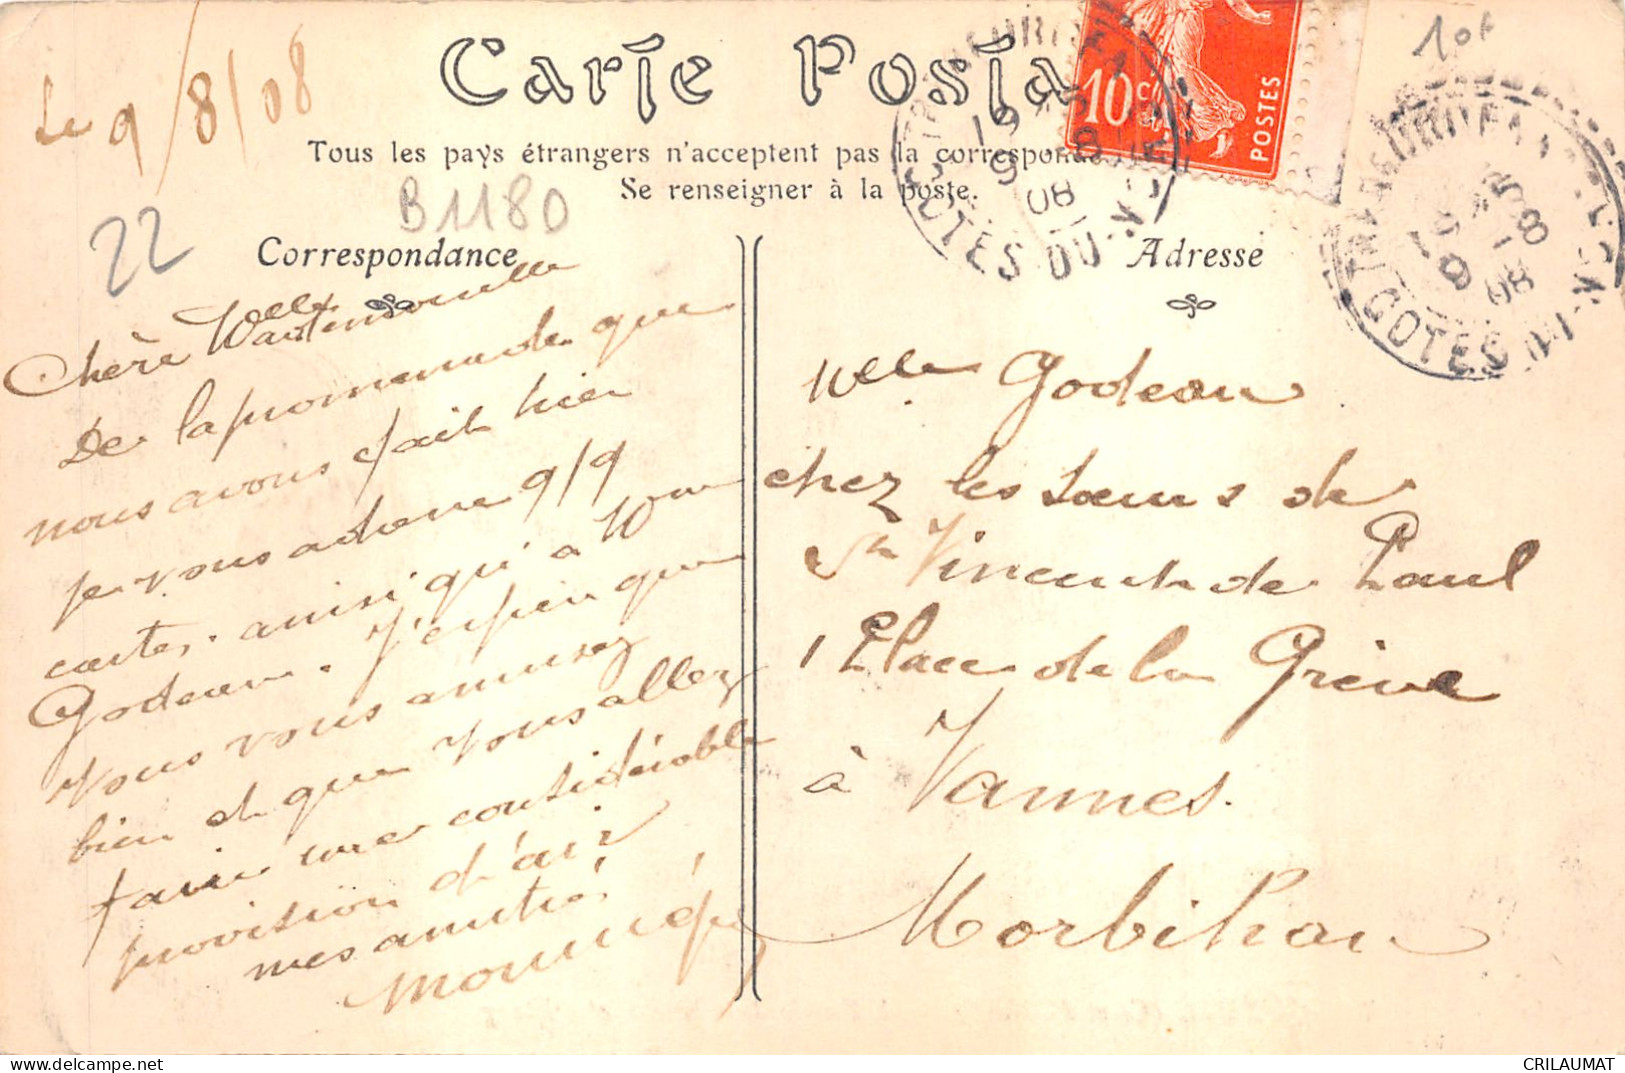 Carte Posta
Le 9/8/08
10f
10c
POSTES
Tous les pays étrangers n'acceptent pas la corresponda
Se renseigner à la poste.
22
B1180
Correspondance
Adresse
Chère
De la promenade que
nous avons fait hier
je vous adresse 9/9
cartes. ainsi qu'à Mme
Godeau. J'espère que
vous vous amusez
bien et que vous allez
faire une considérable
provision d'air
mes amitiés
Melle Godeau
chez les Sœurs de
St Vincent de Paul
1 Place de la Grève
à Vannes.
Morbihan
COTES DU-N
19 08
COTES DU-N
19 08
CRILAUMAT